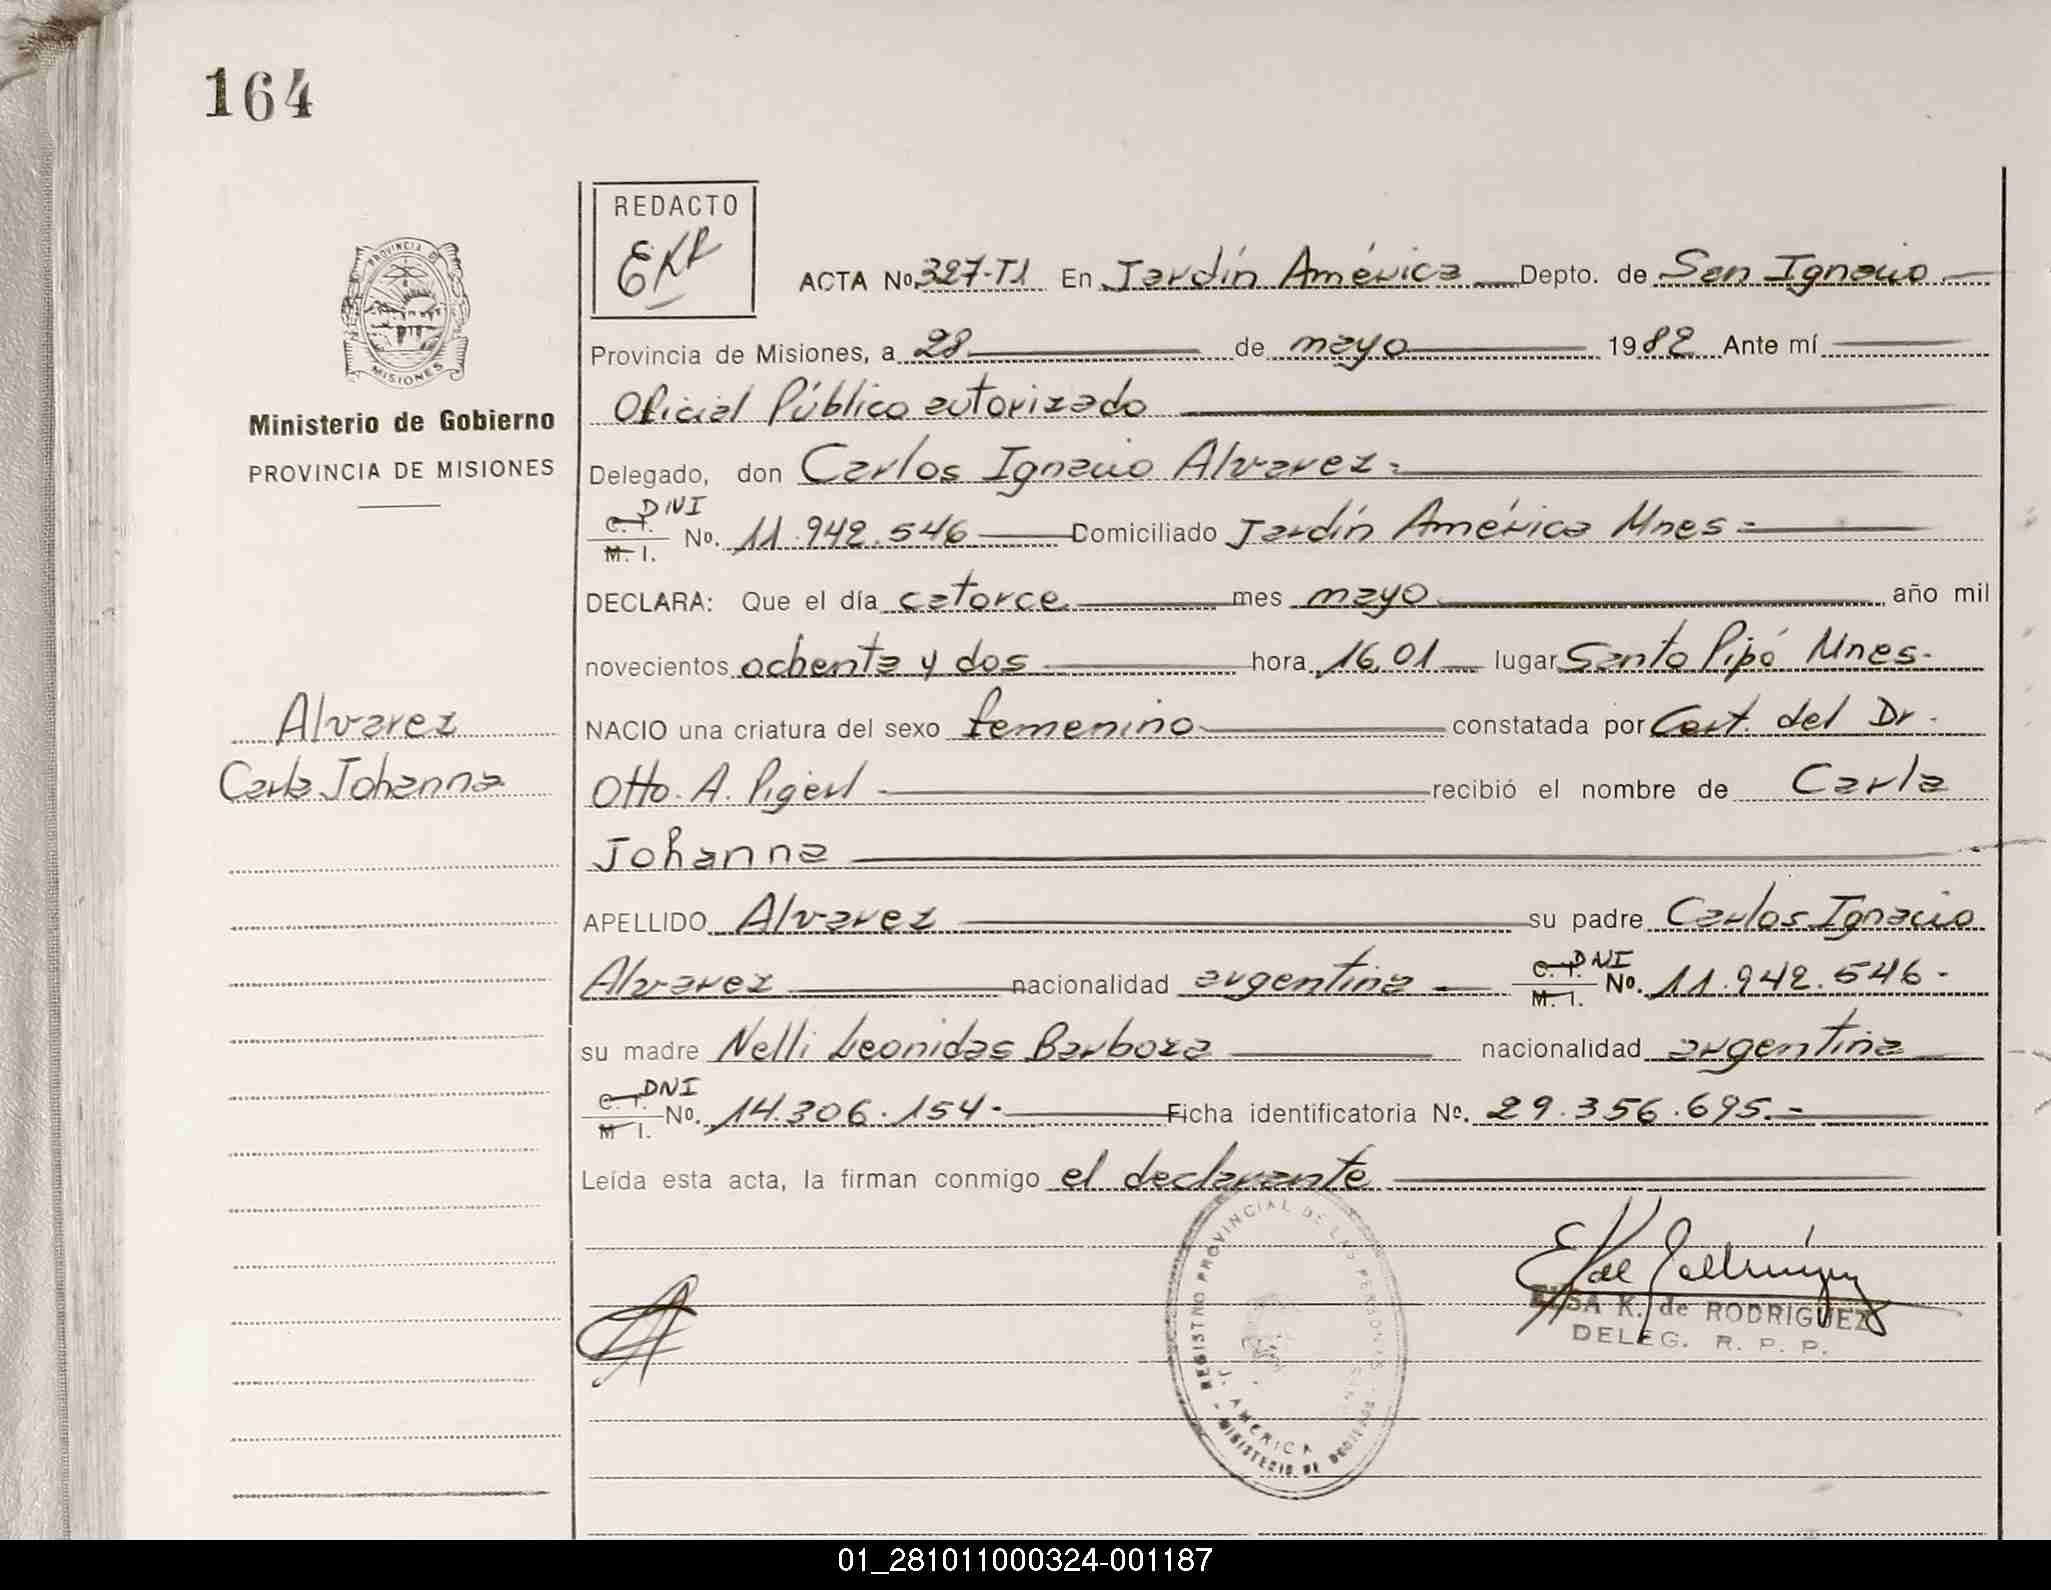 164
REDACTO
EKR
ACTA No. 327-T1 En Jardín América Depto. de San Ignacio
PROVINCIA DE
MISIONES
Provincia de Misiones, a 28 de mayo 1982 Ante mí
Ministerio de Gobierno
PROVINCIA DE MISIONES
Oficial Público autorizado
Delegado, don Carlos Ignacio Alvarez.
C. I. DNI
M. I. No. 11.942.546 Domiciliado Jardín América Mnes
DECLARA: Que el día catorce mes mayo año mil
novecientos ochenta y dos hora 16,01 lugar Santo Pipó Mnes.
Alvarez
Carla Johanna
NACIO una criatura del sexo femenino constatada por Cert. del Dr.
Otto. A. Pigerl recibió el nombre de Carla
Johanna
APELLIDO Alvarez su padre Carlos Ignacio
Alvarez nacionalidad argentina C. I. DNI M. I. No. 11.942.546-
su madre Nelli Leonidas Barboza nacionalidad argentina
C. I. DNI
M. I. No. 14.306.154- Ficha identificatoria No. 29.356.695.-
Leída esta acta, la firman conmigo el declarante
REGISTRO PROVINCIAL DE LAS PERSONAS
J. AMERICA
MINISTERIO DE
ELSA K. de RODRIGUEZ
DELEG. R. P. P.
01_281011000324-001187